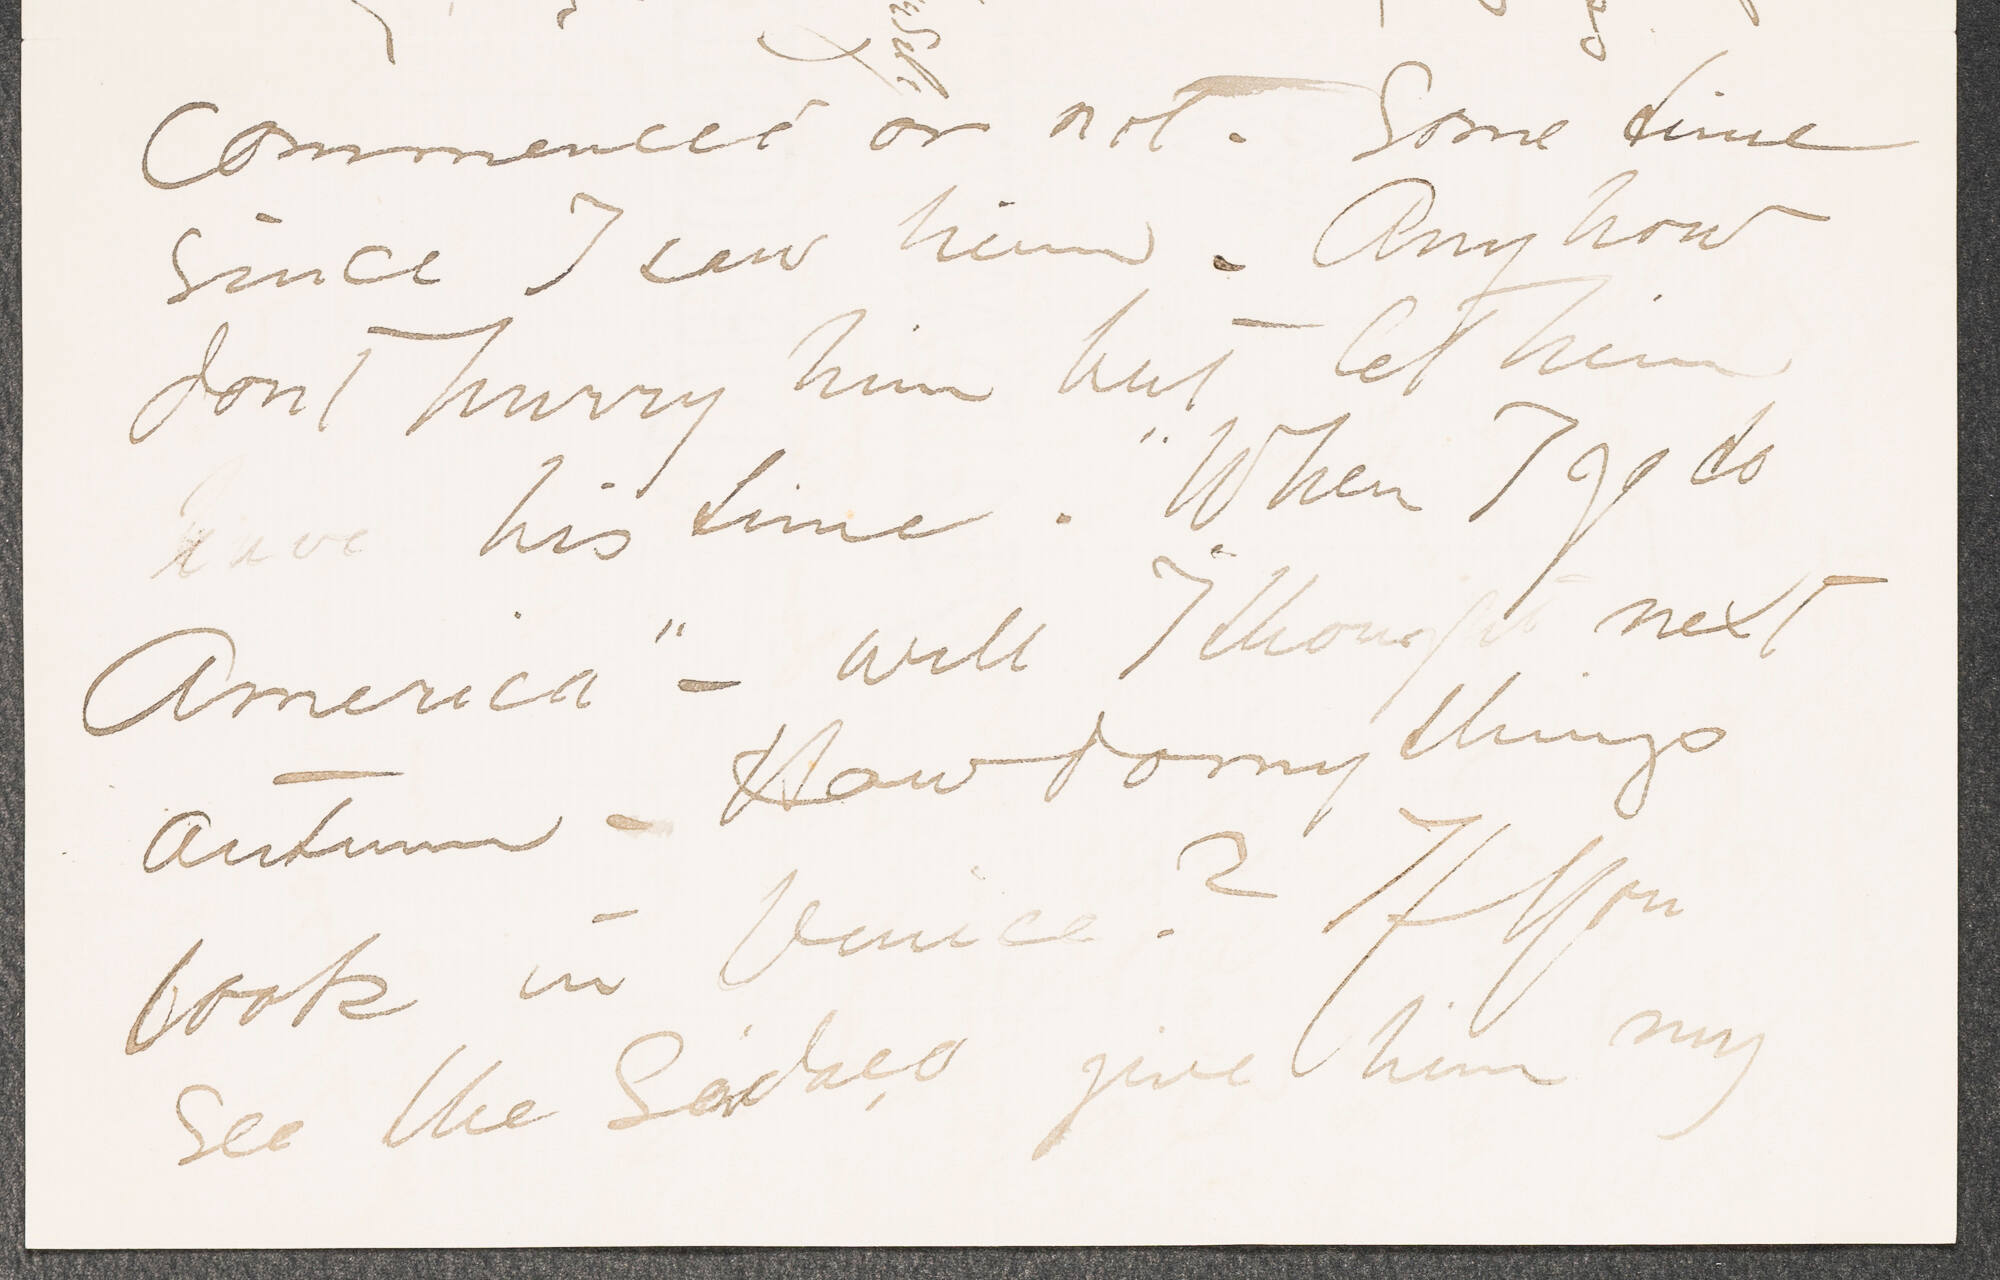 commenced or not. Some time
since I saw him. Anyhow
dont hurry him but let him
have his time. "When I go to
America" – will I thought next
autumn – How do my things
look in Venice? If you
see the give him my